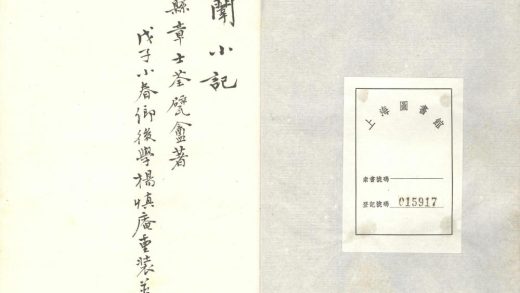 小記
縣章士荃甓盦著
戊子小春鄉後學楊慎庵重裝
上海圖書館
索書號碼
登記號碼 015917